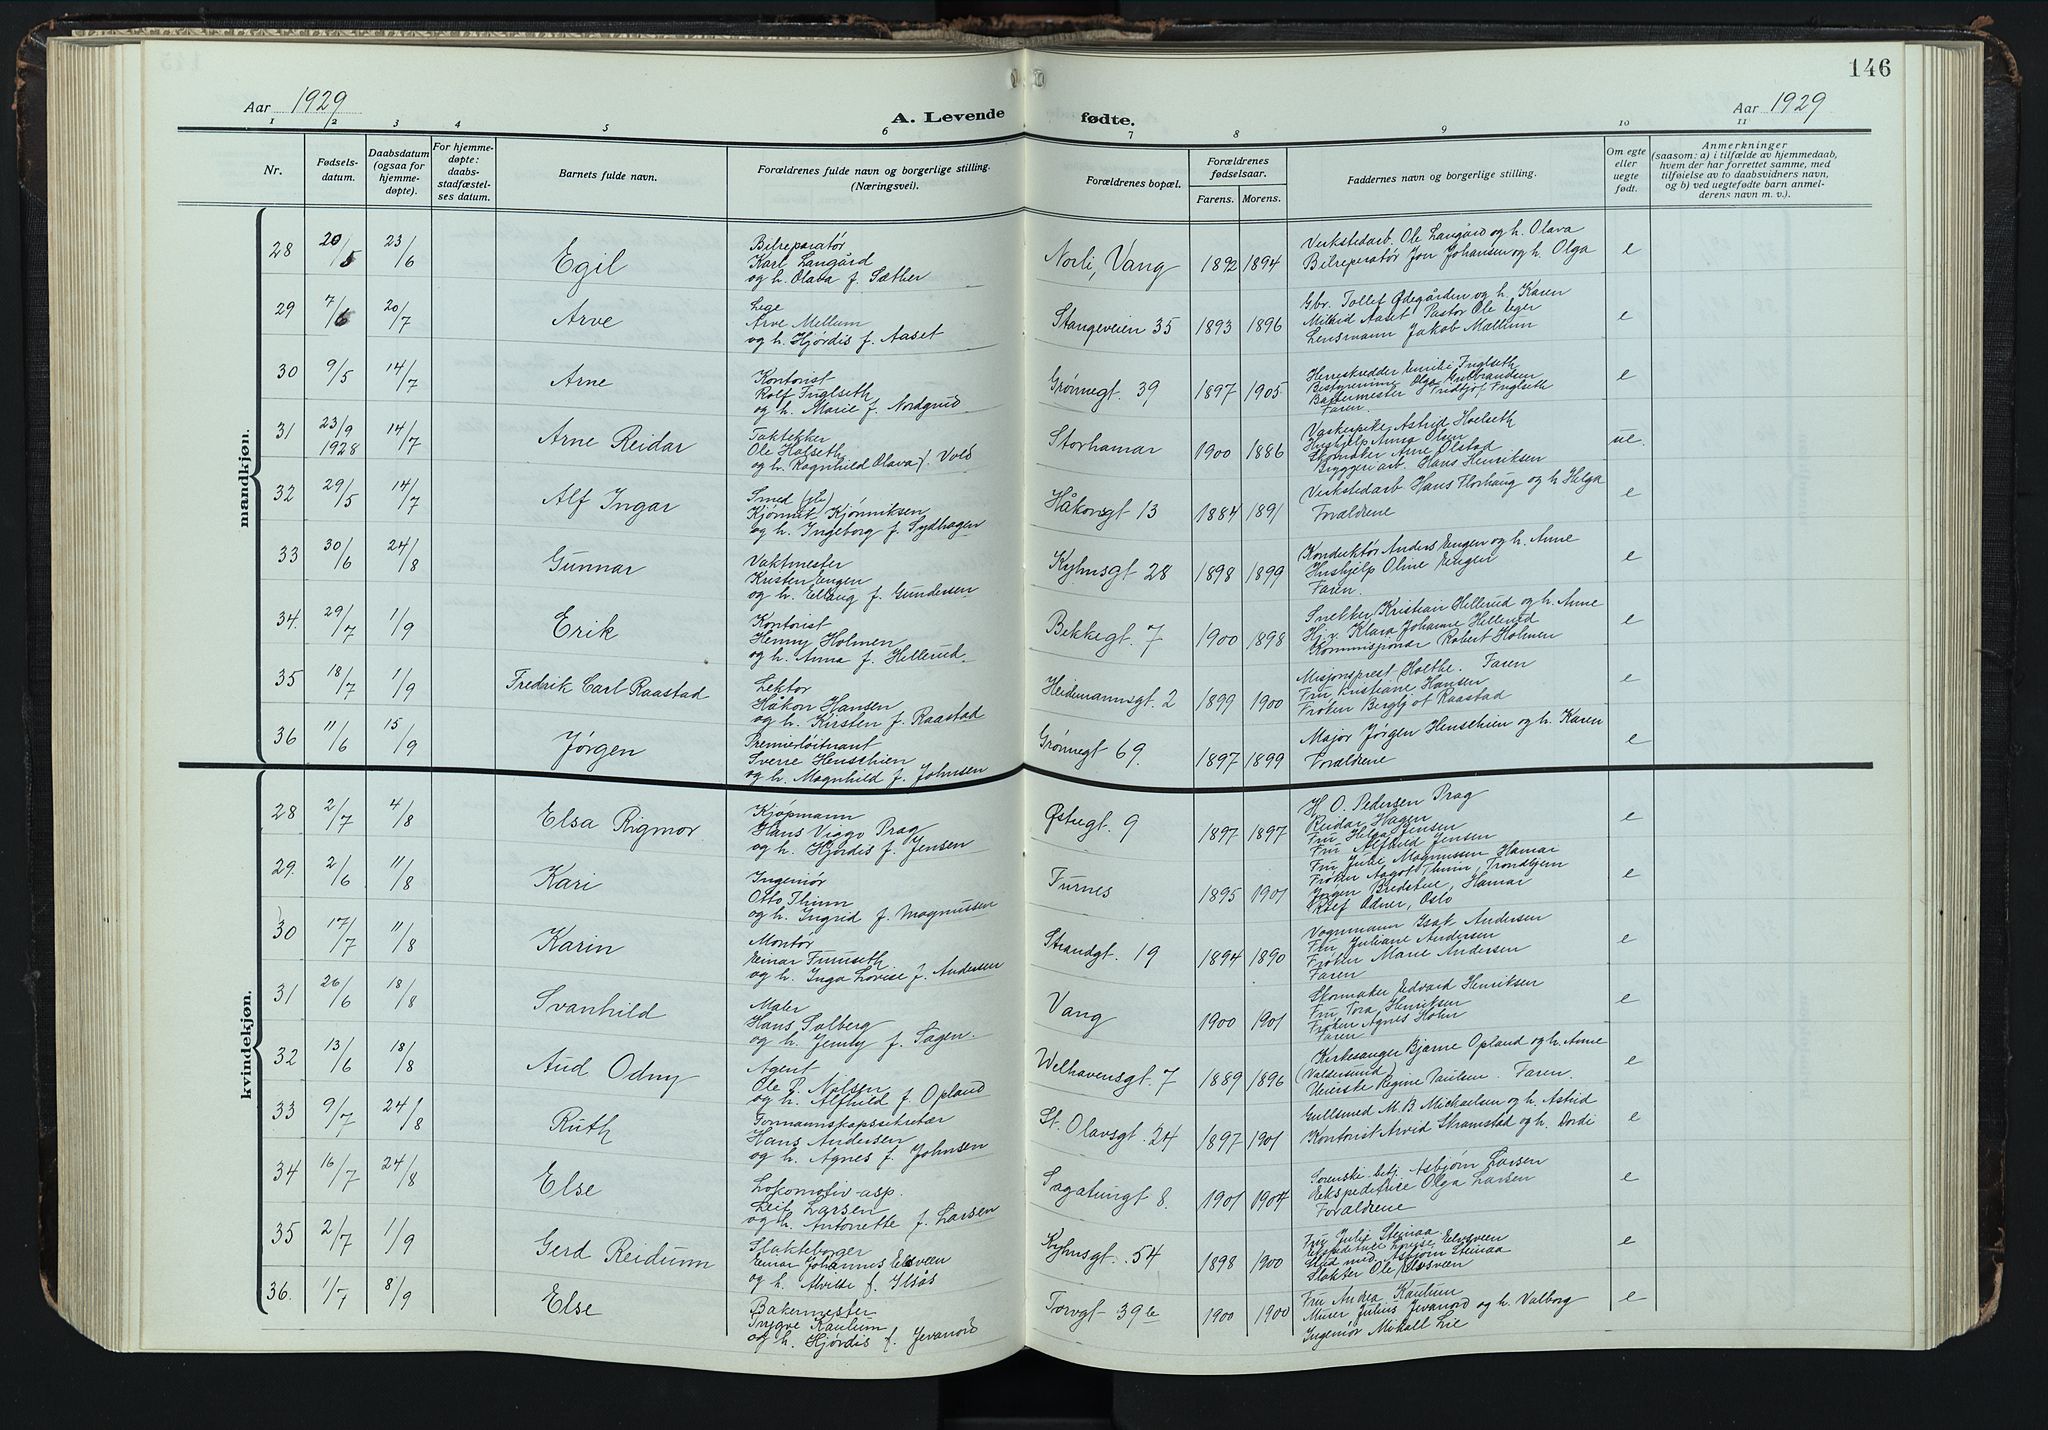 146
Aar 1929
A. Levende fødte.
Aar 1929
1 2 3 4 5 6 7 8 9 10 11
Nr.
Fødsels-
datum.
Daabsdatum
(ogsaa for
hjemme-
døpte).
For hjemme-
døpte:
daabs-
stadfæstel-
ses datum.
Barnets fulde navn.
Forældrenes fulde navn og borgerlige stilling.
(Næringsvei).
Forældrenes bopæl.
Forældrenes
fødselsaar.
Farens. Morens.
Faddernes navn og borgerlige stilling.
Om egte
eller
uegte
født.
Anmerkninger
(saasom: a) i tilfælde av hjemmedaab,
hvem der har forrettet samme, med
tilføielse av to daabsvidners navn,
og b) ved uegtefødte barn anmel-
derens navn m. v.).
mandkjøn.
28 20/5 23/6 Egil
Bilreparatør
Karl Langård
og h. Olava f. Sæther
Norli, Vang 1892 1894
Verkstedarb. Ole Langård og h. Olava
Bilreperatør Jon Johansen og h. Olga
e
29 7/6 20/7 Arve
Lege
Arve Mellum
og h. Hjørdis f. Aaset
Stangeveien 35 1893 1896
Gbr. Tollef Ødegården og h. Karen
Aaset Pastor Ole Eger
Lensmann Jakob Mællum
e
30 9/5 14/7 Arne
Kontorist
Rolf Fuglseth
og h. Marie f. Nordgrud
Grønnegt. 39 1897 1905
Herreskredder Emilie Fuglseth
Bestyrerinne Olga Gulbrandsen
Bakermester Fridtjof Fuglseth
Faren.
e
31 23/9 1928 14/7 Arne Reidar
Taktekker
Ole Halseth
og h. Ragnhild Olava f. Vold
Storhamar 1900 1886
Vaskepike Astrid Hoelseth
Hushjelp Anna Olsen
Skomaker Arne Olstad
Bryggeriarb. Hans Henriksen
ue.
32 29/5 14/7 Alf Ingar
Smed
Kjønnik Kjønniksen
og h. Ingeborg f. Sydhagen
Håkonsgt 13 1884 1891
Verkstedarb. Hans Florhaug og h Helga
Forældrene
e
33 30/6 24/8 Gunnar
Vaktmester
Kristen Engen
og h. Ellaug f. Gundersen
Kyhnsgt 28 1898 1899
Konduktør Anders Engen og h. Anne
Hushjelp Oline Engen
Faren.
e
34. 29/7 1/9 Erik
Kontorist
Henny Holmen
og h. Anna f. Hellerud
Bekkegt. 7 1900 1898
Snekker Kristian Hellerud og h. Anne
H.v. Klara Johanne Hellerud
Kommisjonær Robert Holmen
e
35 18/7 1/9 Fredrik Carl Raastad
Lektor
Håkon Hansen
og h. Kirsten f. Raastad
Heidemannsgt. 2 1899 1900
Misjonsprest Holthe. Faren
Fru Kristiane Hansen
Frøken Bergljot Raastad
e
36 11/6 15/9 Jørgen
Premierløitnant
Sverre Henschien
og h. Magnhild f. Johnsen
Grønnegt 69. 1897 1899
Major Jørgen Henschien og h. Karen
Forældrene
e
kvindekjøn.
28 2/7 4/8 Elsa Rigmor
Kjøpmann
Hans Viggo Prag
og h. Hjørdis f. Jensen
Østregt. 9 1897 1897
H. O. Pedersen Prag
Reidar Hagen
Fru Helga Jensen
Fru Alfhild Jensen
e
29. 2/6 11/8 Kari
Ingeniør
Otto Thunn
og h. Ingrid f. Magnussen
Furnes 1895 1901
Fru Julie Magnussen Hamar
Frøken Aagot Thunn, Trondhjem
Jørgen Bredstue, Hamar
Rolf Odner, Oslo
e
30 17/7 11/8 Karin
Montør
Einar Furuseth
og h. Inga Lovise f. Andersen
Strandgt. 19 1894 1890
Vognmann Isat Andersen
Fru Juliane Andersen
Frøken Marie Andersen
Faren
e
31 26/6 18/8 Svanhild
Maler
Hans Solberg
og h. Jenny f. Sagen.
Vang 1900 1901
Skomaker Edvard Henriksen
Fru Tora Henriksen
Frøken Agnes Holm
Faren
e
32 13/6 18/8 Aud Odny
Agent
Ole P. Nilsen
og h. Alfhild f. Opland
Welhavensgt. 7 1889 1896
Kirkesanger Bjarne Opland og h. Anne
(Valdersund)
Regine Paulsen. Faren.
e
33 9/7 24/8 Ruth
Formannskapssekretær
Hans Andersen
og h. Agnes f. Johnsen
St. Olavsgt. 24 1897 1901
Gullsmed M. B. Mickaelsen og h. Astrid
Kontorist Arvid Stramstad og h. Dordi
e
34 16/7 24/8 Else
Lokomotiv-asp.
Leif Larsen
og h. Antonette f. Larsen
Sagatungt 8. 1901 1904
Sorenskr. betj. Asbjørn Larsen
Ekspeditrice Olga Larsen
Forældrene
e
35 2/7 1/9 Gerd Reidunn
Slakteborger
Einar Johannes Elvsveen
og h. Alvilde f. Ilsås
Kyhnsgt. 54 1898 1900
Fru Julie Steinaa
Ekspeditrice Lovise Elvsveen
Stud med. Asbjørn Steinaa
Slakter Ole Elvsveen
e
36. 1/7 8/9 Else
Bakermester
Yngve Kaulum
og h. Hjørdis f. Jevanord
Torvgt 39b 1900 1900
Fru Andrea Kaulum
Murer Julius Jevanord og h. Valborg
Ingeniør Mikall Lie
e